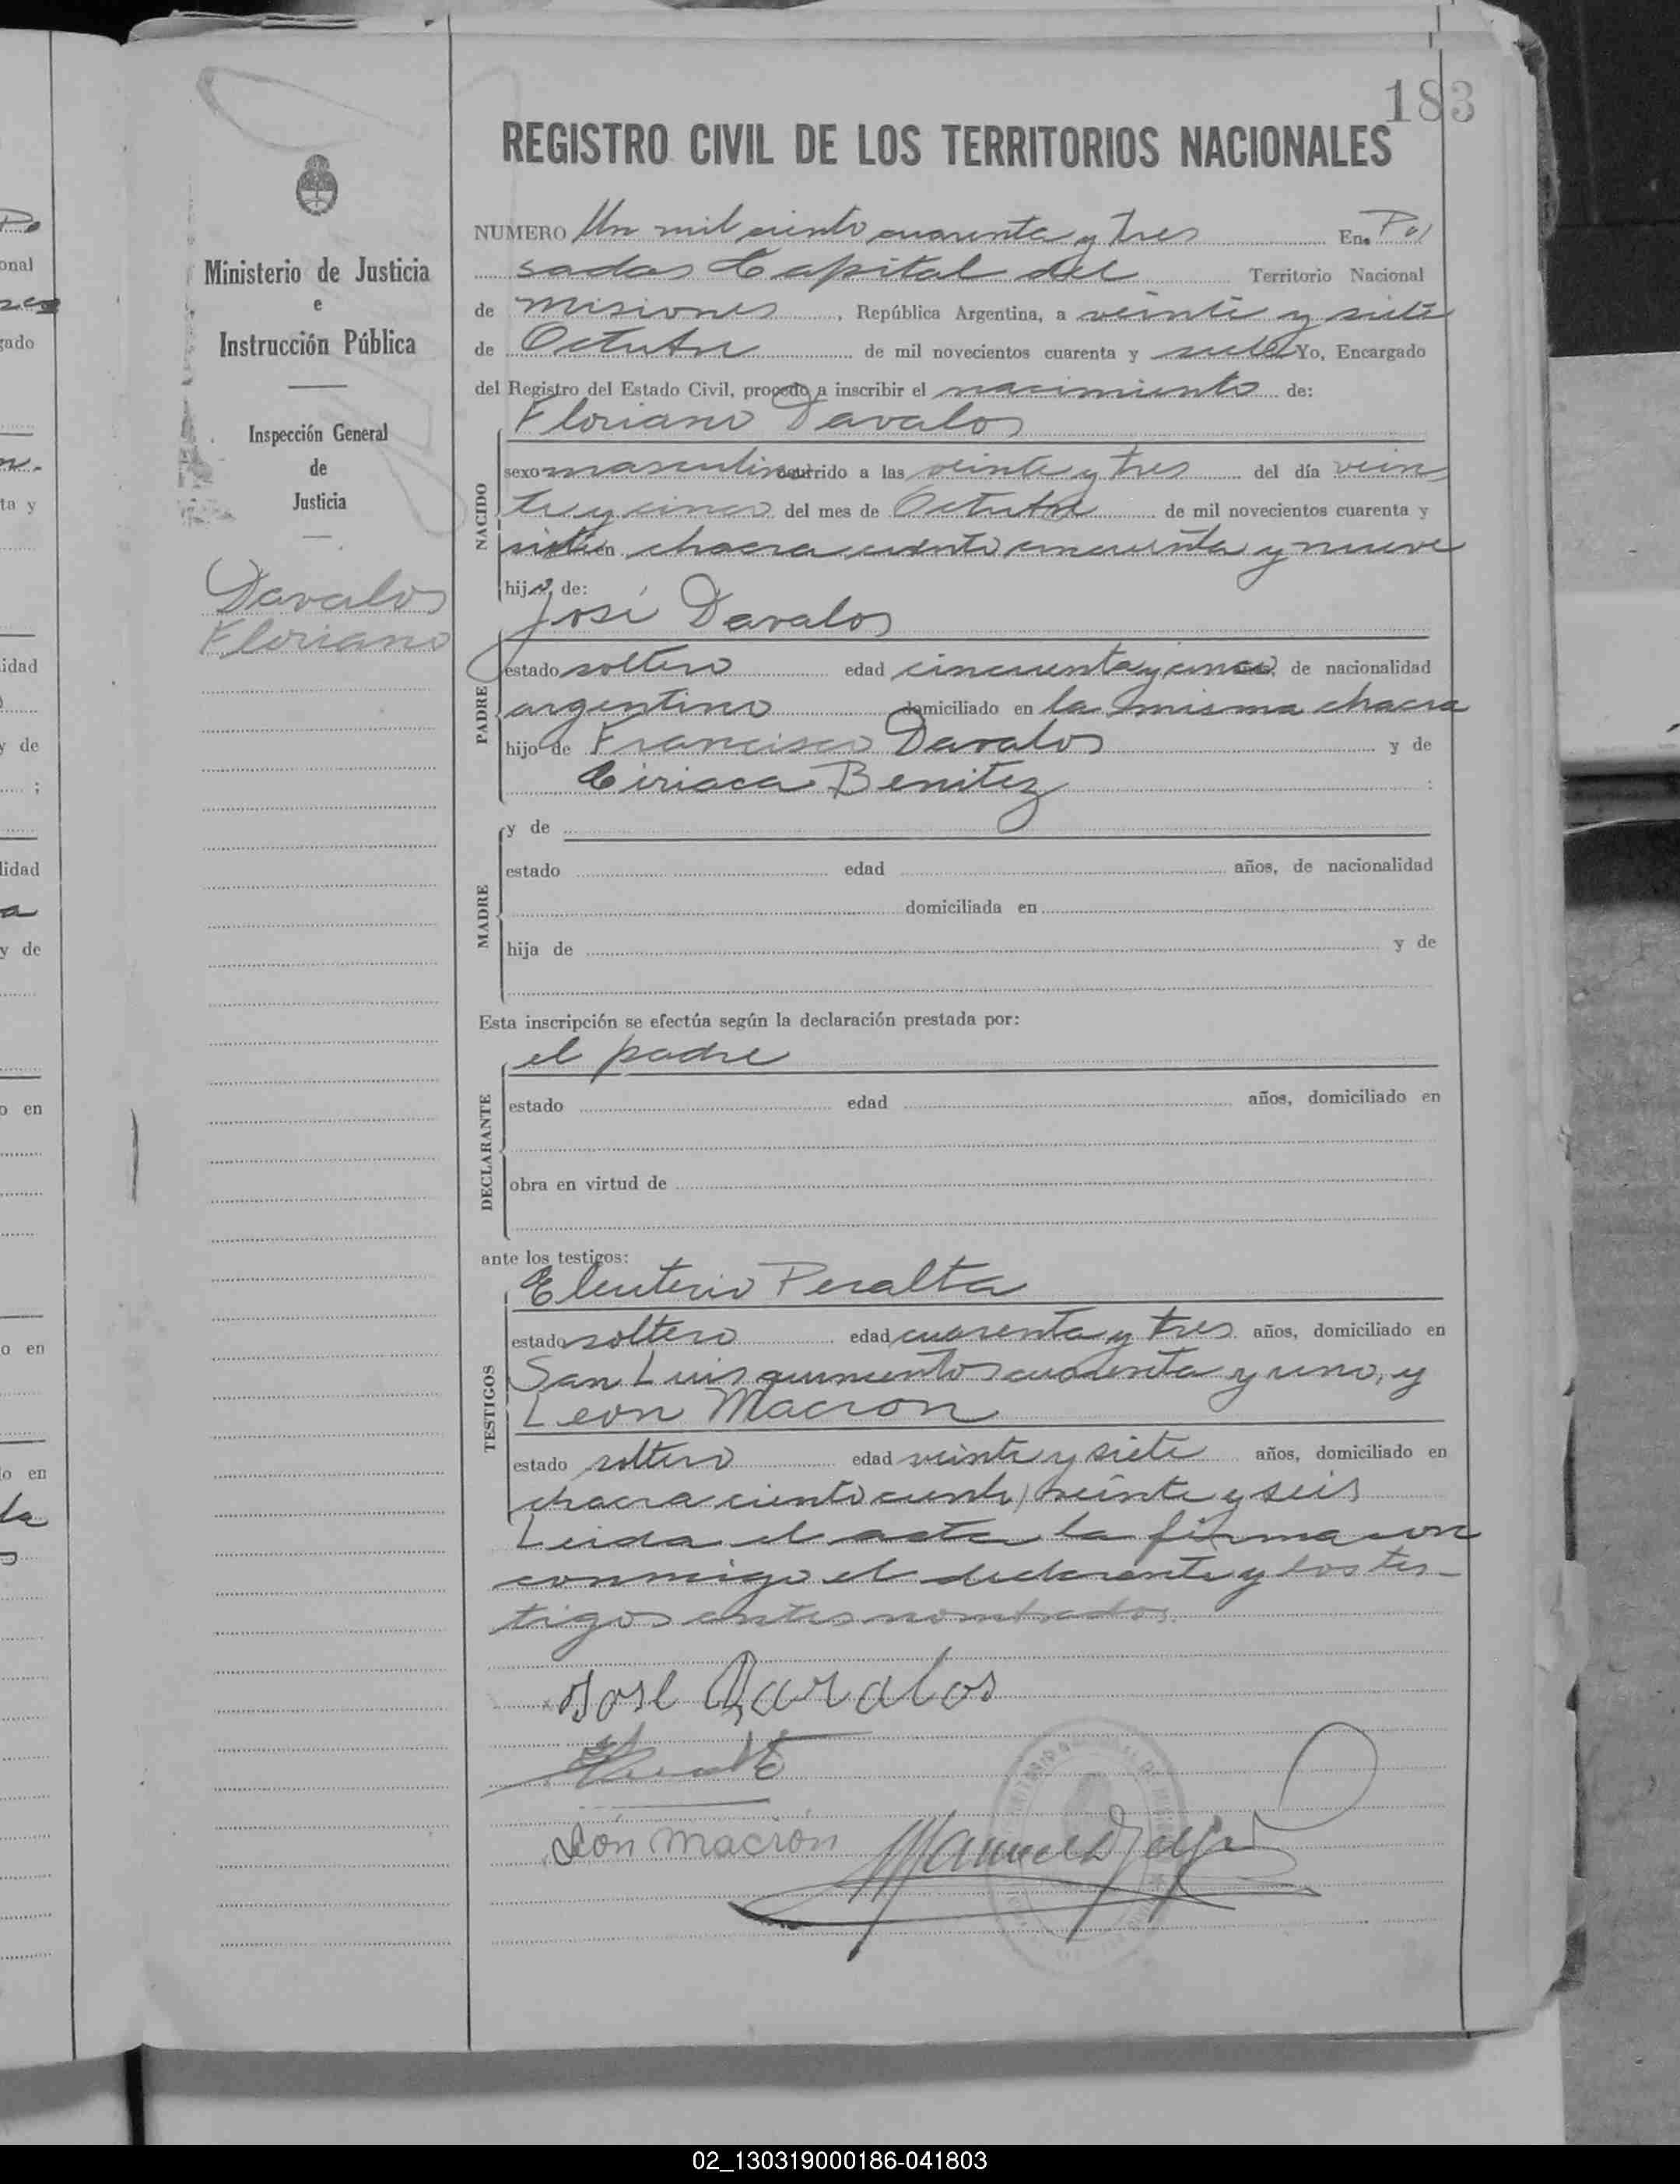 183
REGISTRO CIVIL DE LOS TERRITORIOS NACIONALES
Ministerio de Justicia
e
Instrucción Pública
Inspección General
de
Justicia
Davalos
Floriano
NUMERO Un mil ciento cuarenta y tres En Po
sadas Capital del Territorio Nacional
de Misiones, República Argentina, a veinte y siete
de Octubre de mil novecientos cuarenta y siete Yo, Encargado
del Registro del Estado Civil, procedo a inscribir el nacimiento de:
Floriano Davalos
NACIDO
sexo masculino ocurrido a las veinte y tres del día vein
te y cinco del mes de Octubre de mil novecientos cuarenta y
siete en chacra ciento cincuenta y nueve
hijo de:
José Davalos
PADRE
estado soltero edad cincuenta y cinco años, de nacionalidad
argentino domiciliado en la misma chacra
hijo de Francisco Davalos y de
Ciriaca Benitez ;
MADRE
y de
estado edad años, de nacionalidad
domiciliada en
hija de y de
Esta inscripción se efectúa según la declaración prestada por:
el padre
DECLARANTE
estado edad años, domiciliado en
obra en virtud de
ante los testigos:
Eleuterio Peralta
TESTIGOS
estado soltero edad cuarenta y tres años, domiciliado en
San Luis quinientos cuarenta y uno, y
Leon Macion
estado soltero edad veinte y siete años, domiciliado en
chacra ciento ciento veinte y seis
Leida el acta la firma con
conmigo el declarante y los tes-
tigos antes nombrados.
José Davalos
León Mación
02_130319000186-041803